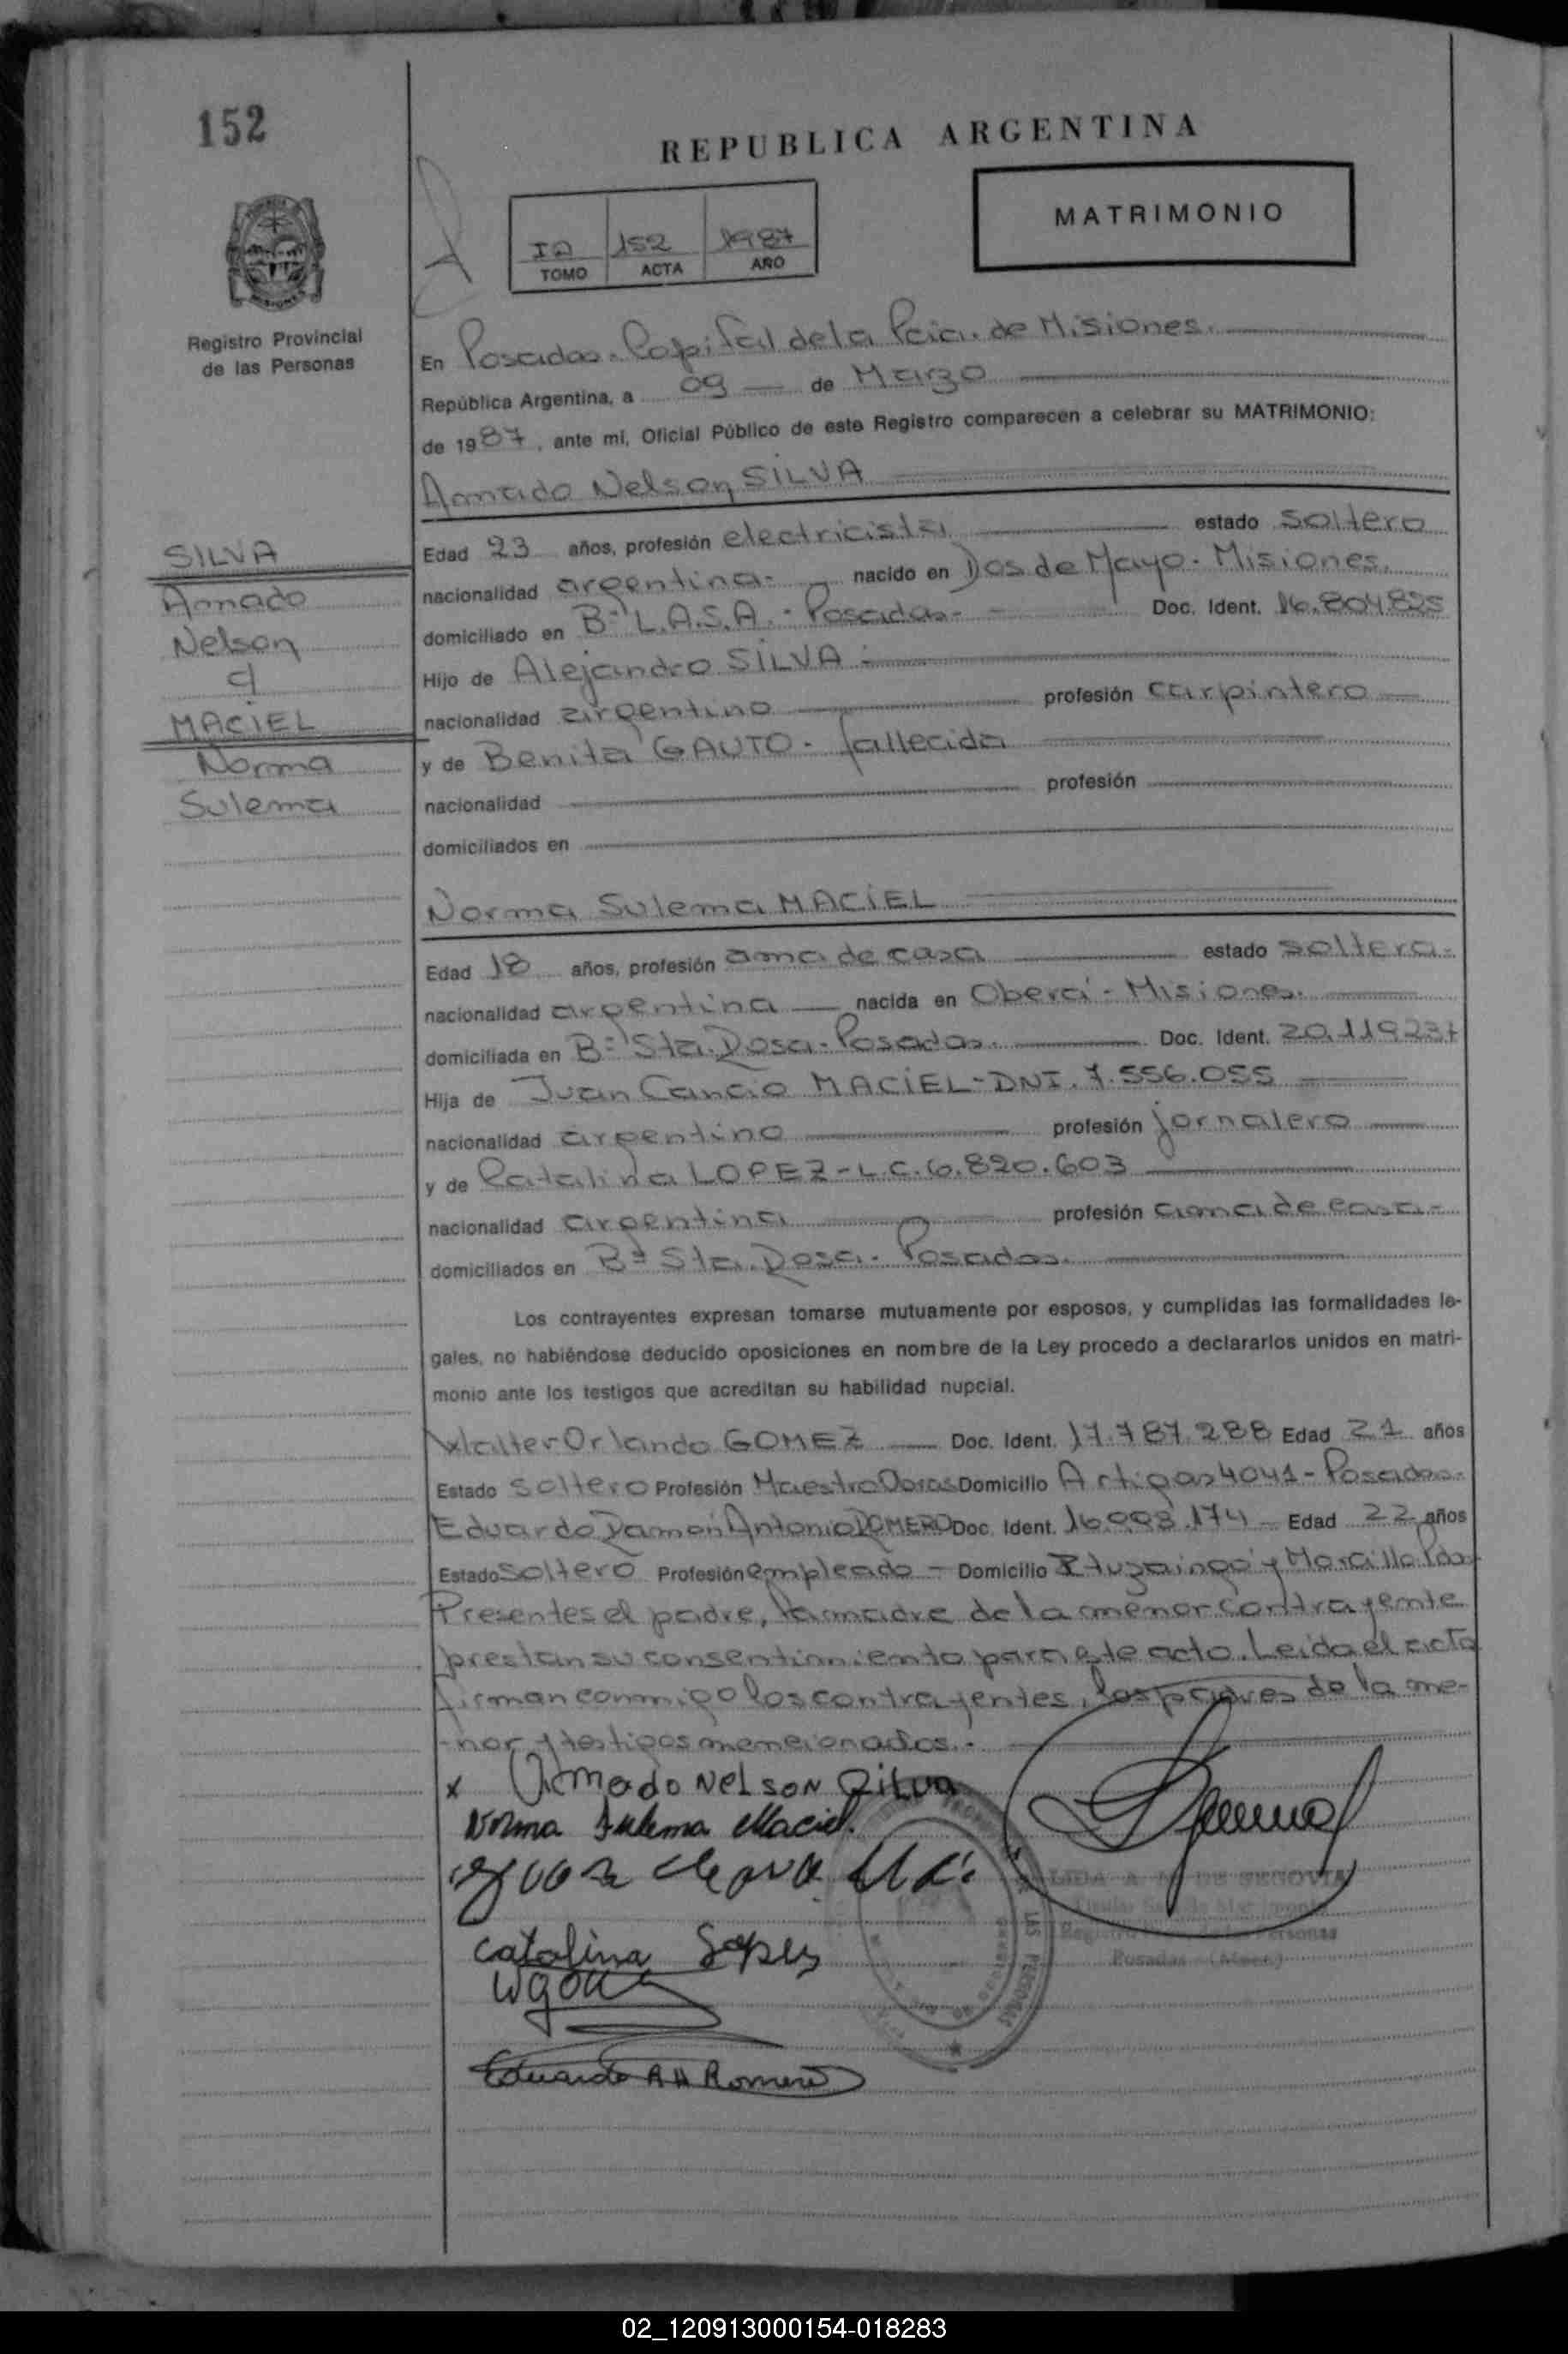 152
REPUBLICA ARGENTINA
MATRIMONIO
152 1987
TOMO ACTA AÑO
Registro Provincial
de las Personas
En Posadas. Capital de la Pcia. de Misiones.
República Argentina, a 09 de Marzo
de 1987, ante mí, Oficial Público de este Registro comparecen a celebrar su MATRIMONIO:
Armado Nelson SILVA
SILVA
Armado
Nelson
c/
MACIEL
Norma
Sulema
Edad 23 años, profesión electricista estado soltero
nacionalidad argentina.- nacido en Dos de Mayo. Misiones.
domiciliado en Bº L.A.S.A.- Posadas- Doc. Ident. 16.804.825
Hijo de Alejandro SILVA
nacionalidad argentino profesión carpintero
y de Benita GAUTO. fallecida
nacionalidad profesión
domiciliados en
Norma Sulema MACIEL
Edad 18 años, profesión ama de casa estado soltera.
nacionalidad argentina nacida en Oberá- Misiones.
domiciliada en Bº Sta. Rosa. Posadas. Doc. Ident. 20.119237
Hija de Juan Cancio MACIEL-DNI. 7.556.055
nacionalidad argentino profesión jornalero
y de Catalina LOPEZ-L.C.6.820.603
nacionalidad argentina profesión ama de casa-
domiciliados en Bº Sta. Rosa. Posadas.
Los contrayentes expresan tomarse mutuamente por esposos, y cumplidas las formalidades le-
gales, no habiéndose deducido oposiciones en nombre de la Ley procedo a declararlos unidos en matri-
monio ante los testigos que acreditan su habilidad nupcial.
Walter Orlando GOMEZ Doc. Ident. 17.787.288 Edad 21 años
Estado soltero Profesión Maestro Obras Domicilio Artigas 4041- Posadas.
Eduardo Ramón Antonio ROMERO Doc. Ident. 16.008.174 Edad 22 años
Estado soltero Profesión empleado - Domicilio Ituzaingó y
Presentes el padre, la madre de la menor contrayente
prestan su consentimiento para este acto. Leída el acta
firman conmigo los contrayentes, los padres de la me-
nor y testigos mencionados.-
x Armado Nelson Silva
Norma Sulema Maciel.
Catalina Lopes
Eduardo Romero
LIDA A DE SEGOVIA
Posadas
02_120913000154-018283